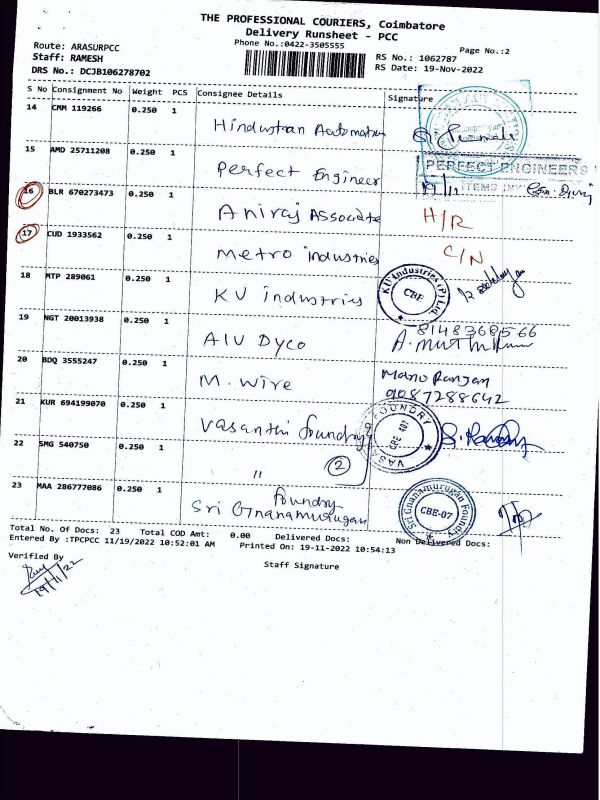 THE PROFESSIONAL COURIERS, Coimbatore
Delivery Runsheet - PCC
Phone No.:0422-3505555
Page No.:2
Route: ARASURPCC
Staff: RAMESH
RS No.: 1062787
DRS No.: DCJB106278702
RS Date: 19-Nov-2022
S No Consignment No Weight PCS Consignee Details Signature
14 CMM 119266 0.250 1
Hindustan Automation
15 AMD 25711208 0.250 1
Perfect Engineer
PERFECT ENGINEERS
19/11
16 BLR 670273473 0.250 1
Aniraj Associate H/R
17 CUD 1933562 0.250 1
Metro Industries C/N
18 MTP 289061 0.250 1
KV Industries
K U Industries (P) Ltd.
CBE
19 NGT 20013938 0.250 1
8148368566
AIU Dyco
20 BDQ 3555247 0.250 1
M. Wire
Mano Ranjan
9087288642
21 KUR 694199070 0.250 1
Vasanthi foundry
FOUNDRY
CBE 407
22 SMG 540750 0.250 1
" 2
23 MAA 286777086 0.250 1
foundry
Sri Gnanamurugan
Sri Gnanamurugan Foundry
CBE-07
Total No. Of Docs: 23 Total COD Amt: 0.00 Delivered Docs: Non Delivered Docs:
Entered By :TPCPCC 11/19/2022 10:52:01 AM Printed On: 19-11-2022 10:54:13
Verified By
Staff Signature
19/11/22